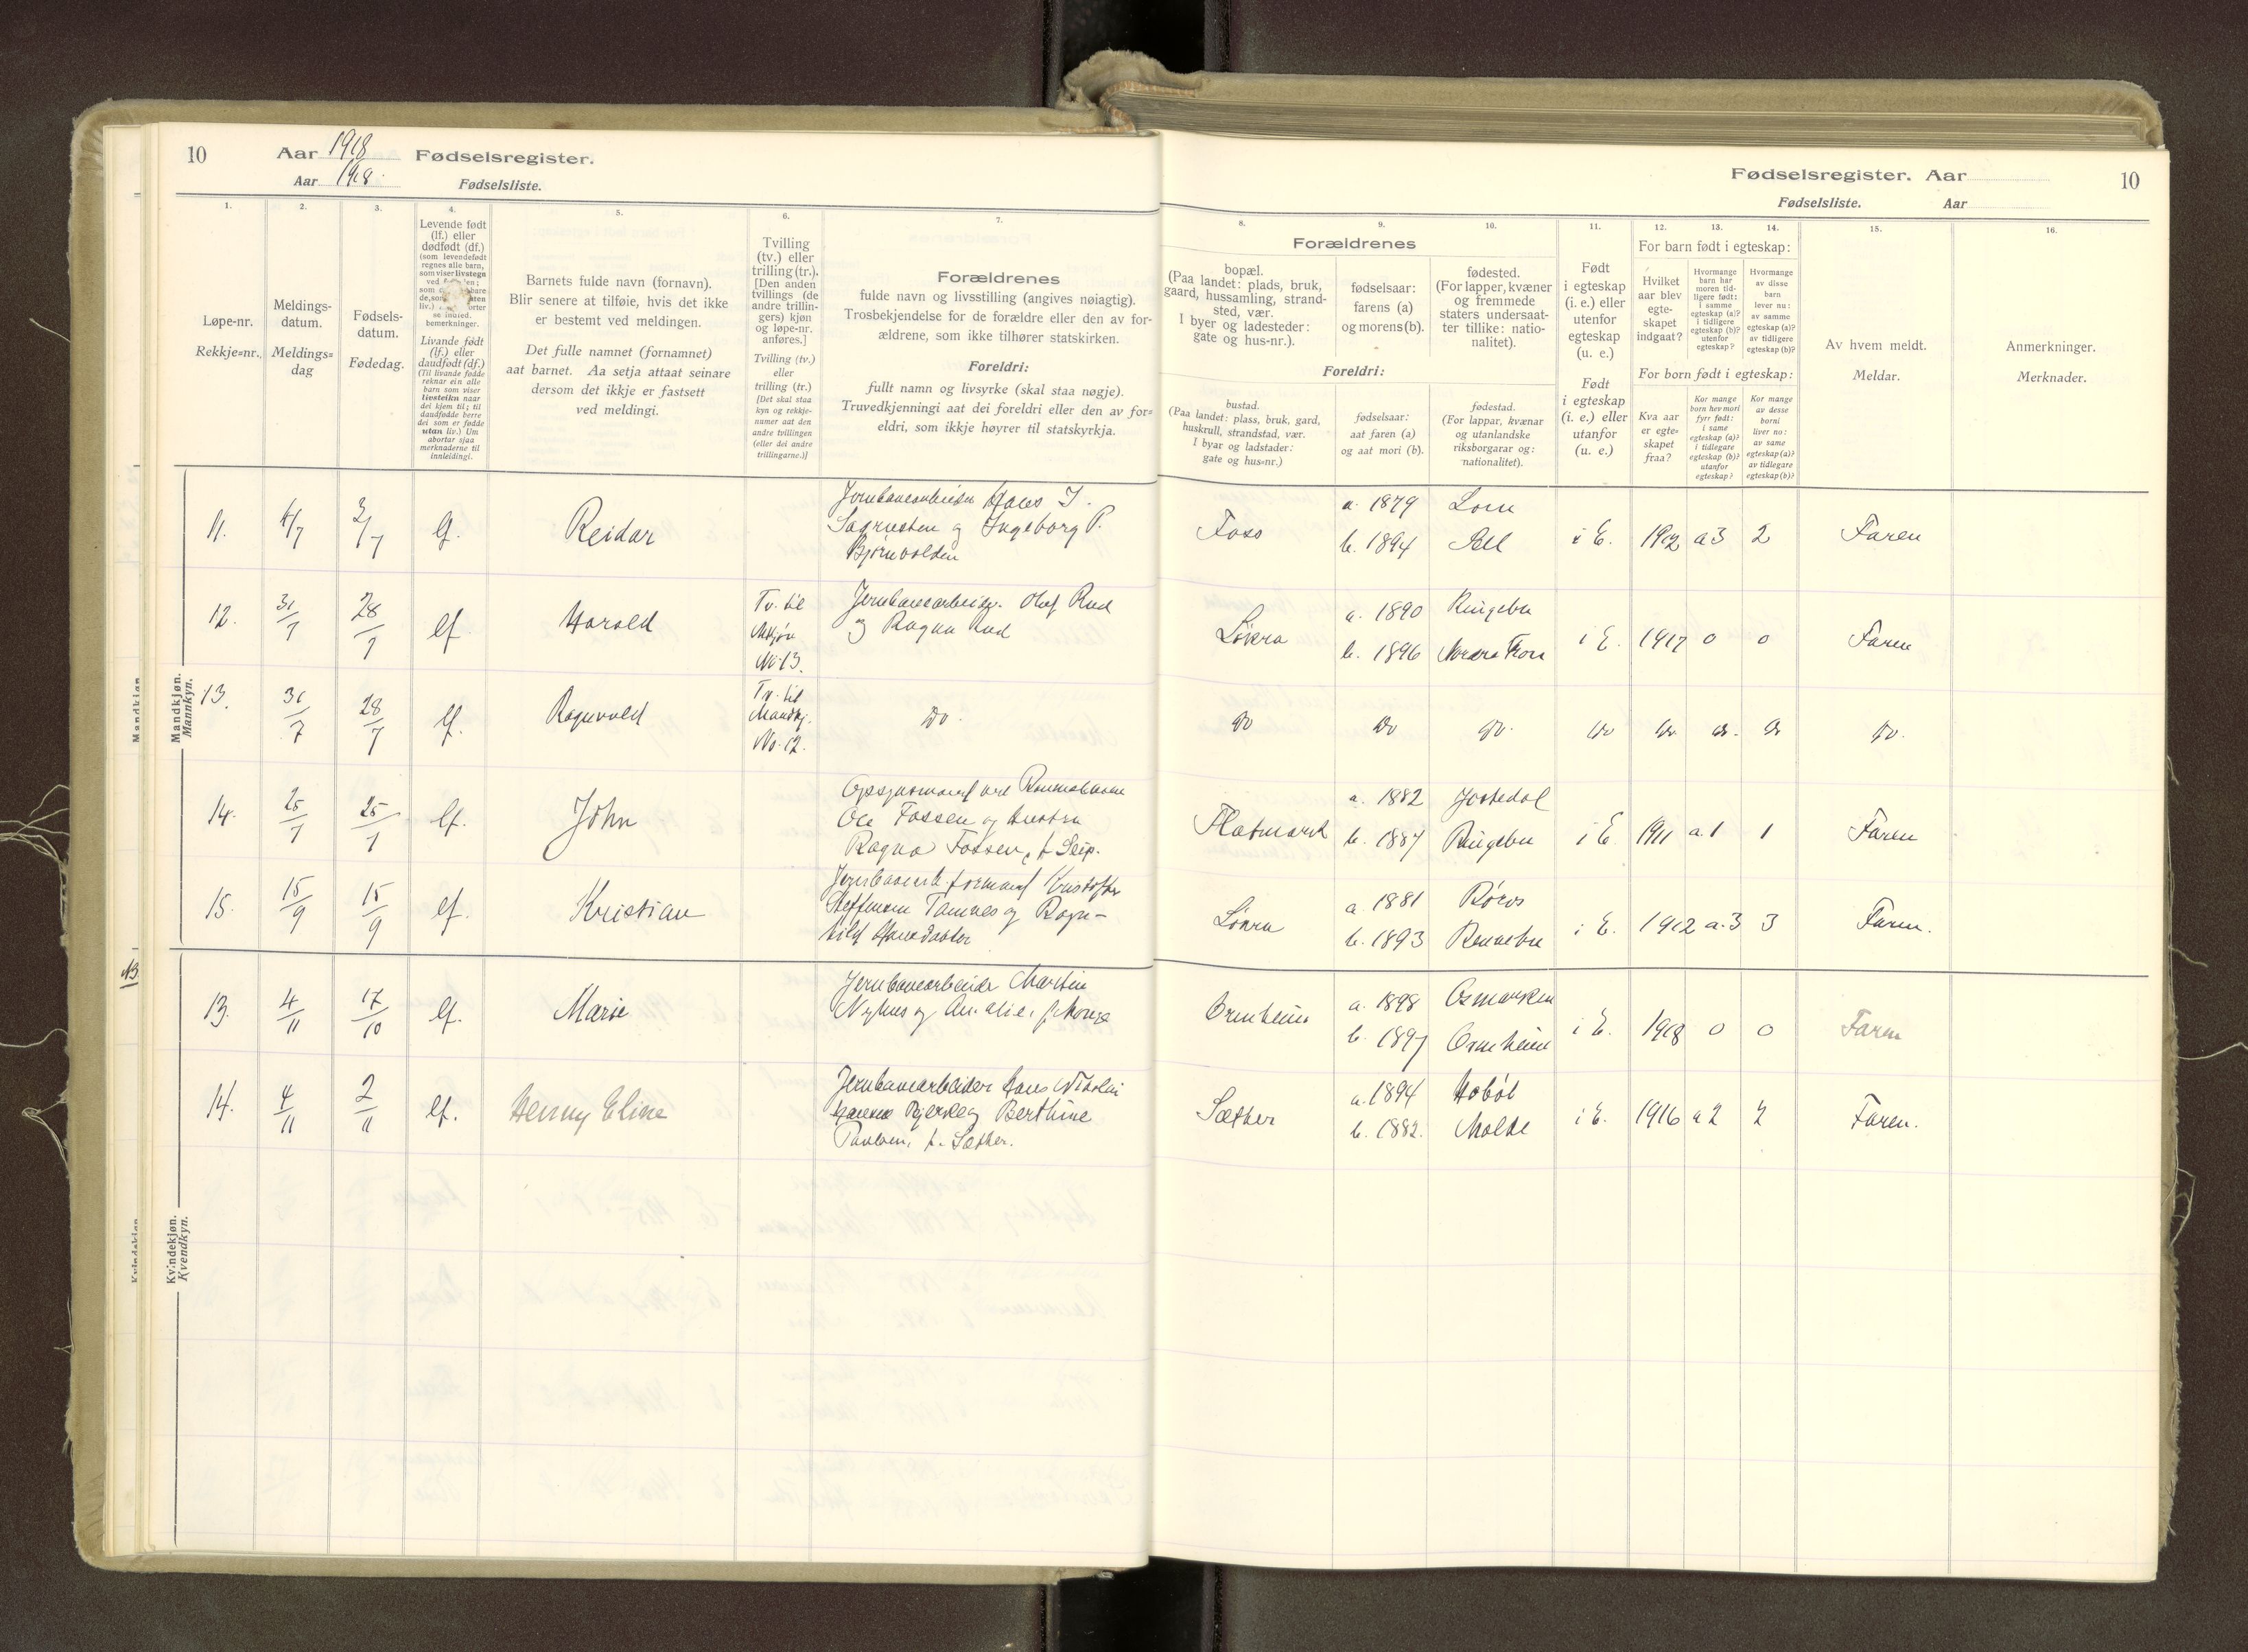 10 Aar 1918 Fødselsregister.
Aar 1918. Fødselsliste.
Fødselsregister. Aar 10
Fødselsliste. Aar
1. 2. 3. 4. 5. 6. 7. 8. 9. 10. 11. 12. 13. 14. 15. 16.
Løpe-nr.
Rekkje=nr.
Meldings-
datum.
Meldings=
dag
Fødsels-
datum.
Fødedag.
Levende født
(lf.) eller
dødfødt (df.)
(som levendefødt
regnes alle barn,
som viser livstegn
bemerkninger.
Livande født
(lf.) eller
daudfødt (df.)
(Til livande fødde
reknar ein alle
barn som viser
livsteikn naar
dei kjem til; til
daudfødde berre
dei som er fødde
utan liv.) Um
abortar sjaa
merknaderne til
innleidingi.
Barnets fulde navn (fornavn).
Blir senere at tilføie, hvis det ikke
er bestemt ved meldingen.
Det fulle namnet (fornamnet)
aat barnet. Aa setja attaat seinare
dersom det ikkje er fastsett
ved meldingi.
Tvilling
(tv.) eller
trilling (tr.).
[Den anden
tvillings (de
andre trillin-
gers) kjøn
og løpe-nr.
anføres.]
Tvilling (tv.)
eller
trilling (tr.)
[Det skal staa
kyn og rekkje-
numer aat den
andre tvillingen
(eller dei andre
trillingarne.)]
Forældrenes
fulde navn og livsstilling (angives nøiagtig).
Trosbekjendelse for de forældre eller den av for-
ældrene, som ikke tilhører statskirken.
Foreldri:
fullt namn og livsyrke (skal staa nøgje).
Truvedkjenningi aat dei foreldri eller den av for=
eldri, som ikkje høyrer til statskyrkja.
Forældrenes
bopæl.
(Paa landet: plads, bruk,
gaard, hussamling, strand-
sted, vær.
I byer og ladesteder:
gate og hus-nr.).
fødselsaar:
farens (a)
og morens (b).
fødested.
(For lapper, kvæner
og fremmede
staters undersaat-
ter tillike: natio-
nalitet).
Foreldri:
bustad.
(Paa landet: plass, bruk, gard,
huskrull, strandstad, vær.
I byar og ladstader:
gate og hus=nr.)
fødselsaar:
aat faren (a)
og aat mori (b).
fødestad.
(For lappar, kvænar
og utanlandske
riksborgarar og:
nationalitet).
Født
i egteskap
(i. e.) eller
utenfor
egteskap
(u. e.)
Født
i egteskap
(i. e.) eller
utanfor
(u. e.)
For barn født i egteskap:
Hvilket
aar blev
egte-
skapet
indgaat?
Hvormange
barn har
moren tid-
ligere født:
i samme
egteskap (a)?
i tidligere
egteskap (b)?
utenfor
egteskap?
Hvormange
av disse
barn
lever nu:
av samme
egteskap (a)?
av tidligere
egteskap (b)?
For born født i egteskap:
Kva aar
er egte-
skapet
fraa?
Kor mange
born hev mori
fyrr født:
i same
egteskap (a)?
i tidlegare
egteskap (b)?
utanfor
egteskap?
Kor mange
av desse
borni
liver no:
av same
egteskap (a)?
av tidlegare
egteskap (b)?
Av hvem meldt.
Meldar.
Anmerkninger.
Merknader.
Mandkjøn.
Mannkyn.
11. 4/7 2/7 lf. Reidar
Hans
og Ingeborg P.
Foss a. 1879 Lom
b. 1894 Sell i E. 1912 a 3 2 Faren
12. 31/7 28/7 lf. Harald Tv. til
No. 13.
Jernbanearbeider Olaf Rud
og Ragna Rud
a. 1890 Ringebu
b. 1896 i E. 1917 0 0 Faren
13. 31/7 28/7 lf. Ragnvald Tv. til
Mandkj.
No. 12.
Do. Do Do Do. Do Do Do. Do Do.
14. 25/7 lf. John
Ole Fossen og hustru
Ragna Fossen, f. Seip.
Flatmark a. 1882 Jostedal
b. 1887 Ringebu i E. 1911 a. 1 1 Faren
15. 15/9 15/9 lf. Kristian
formand Kristofer
Steffensen Tamnes og Ragn-
hild
a. 1881 Røros
b. 1893 Rennebu i E. 1912 a. 3 3 Faren.
Kvindekjøn.
Kvendkyn.
13. 4/11 17/10 lf. Marie
Jernbanearbeider Martin
Nyhus og
Ormheim a. 1898 Osmarken
b. 1897 Ormheim i E. 1918 0 0 Faren
14. 4/11 2/11 lf. Henny Eline
Jernbanearbeider Hans Nikolai
Bjerke og Berthine
Paulsen, f. Sæther.
Sæther a. 1894 Hobøl
b. 1882. Molde i E. 1916 a 2 2 Faren.